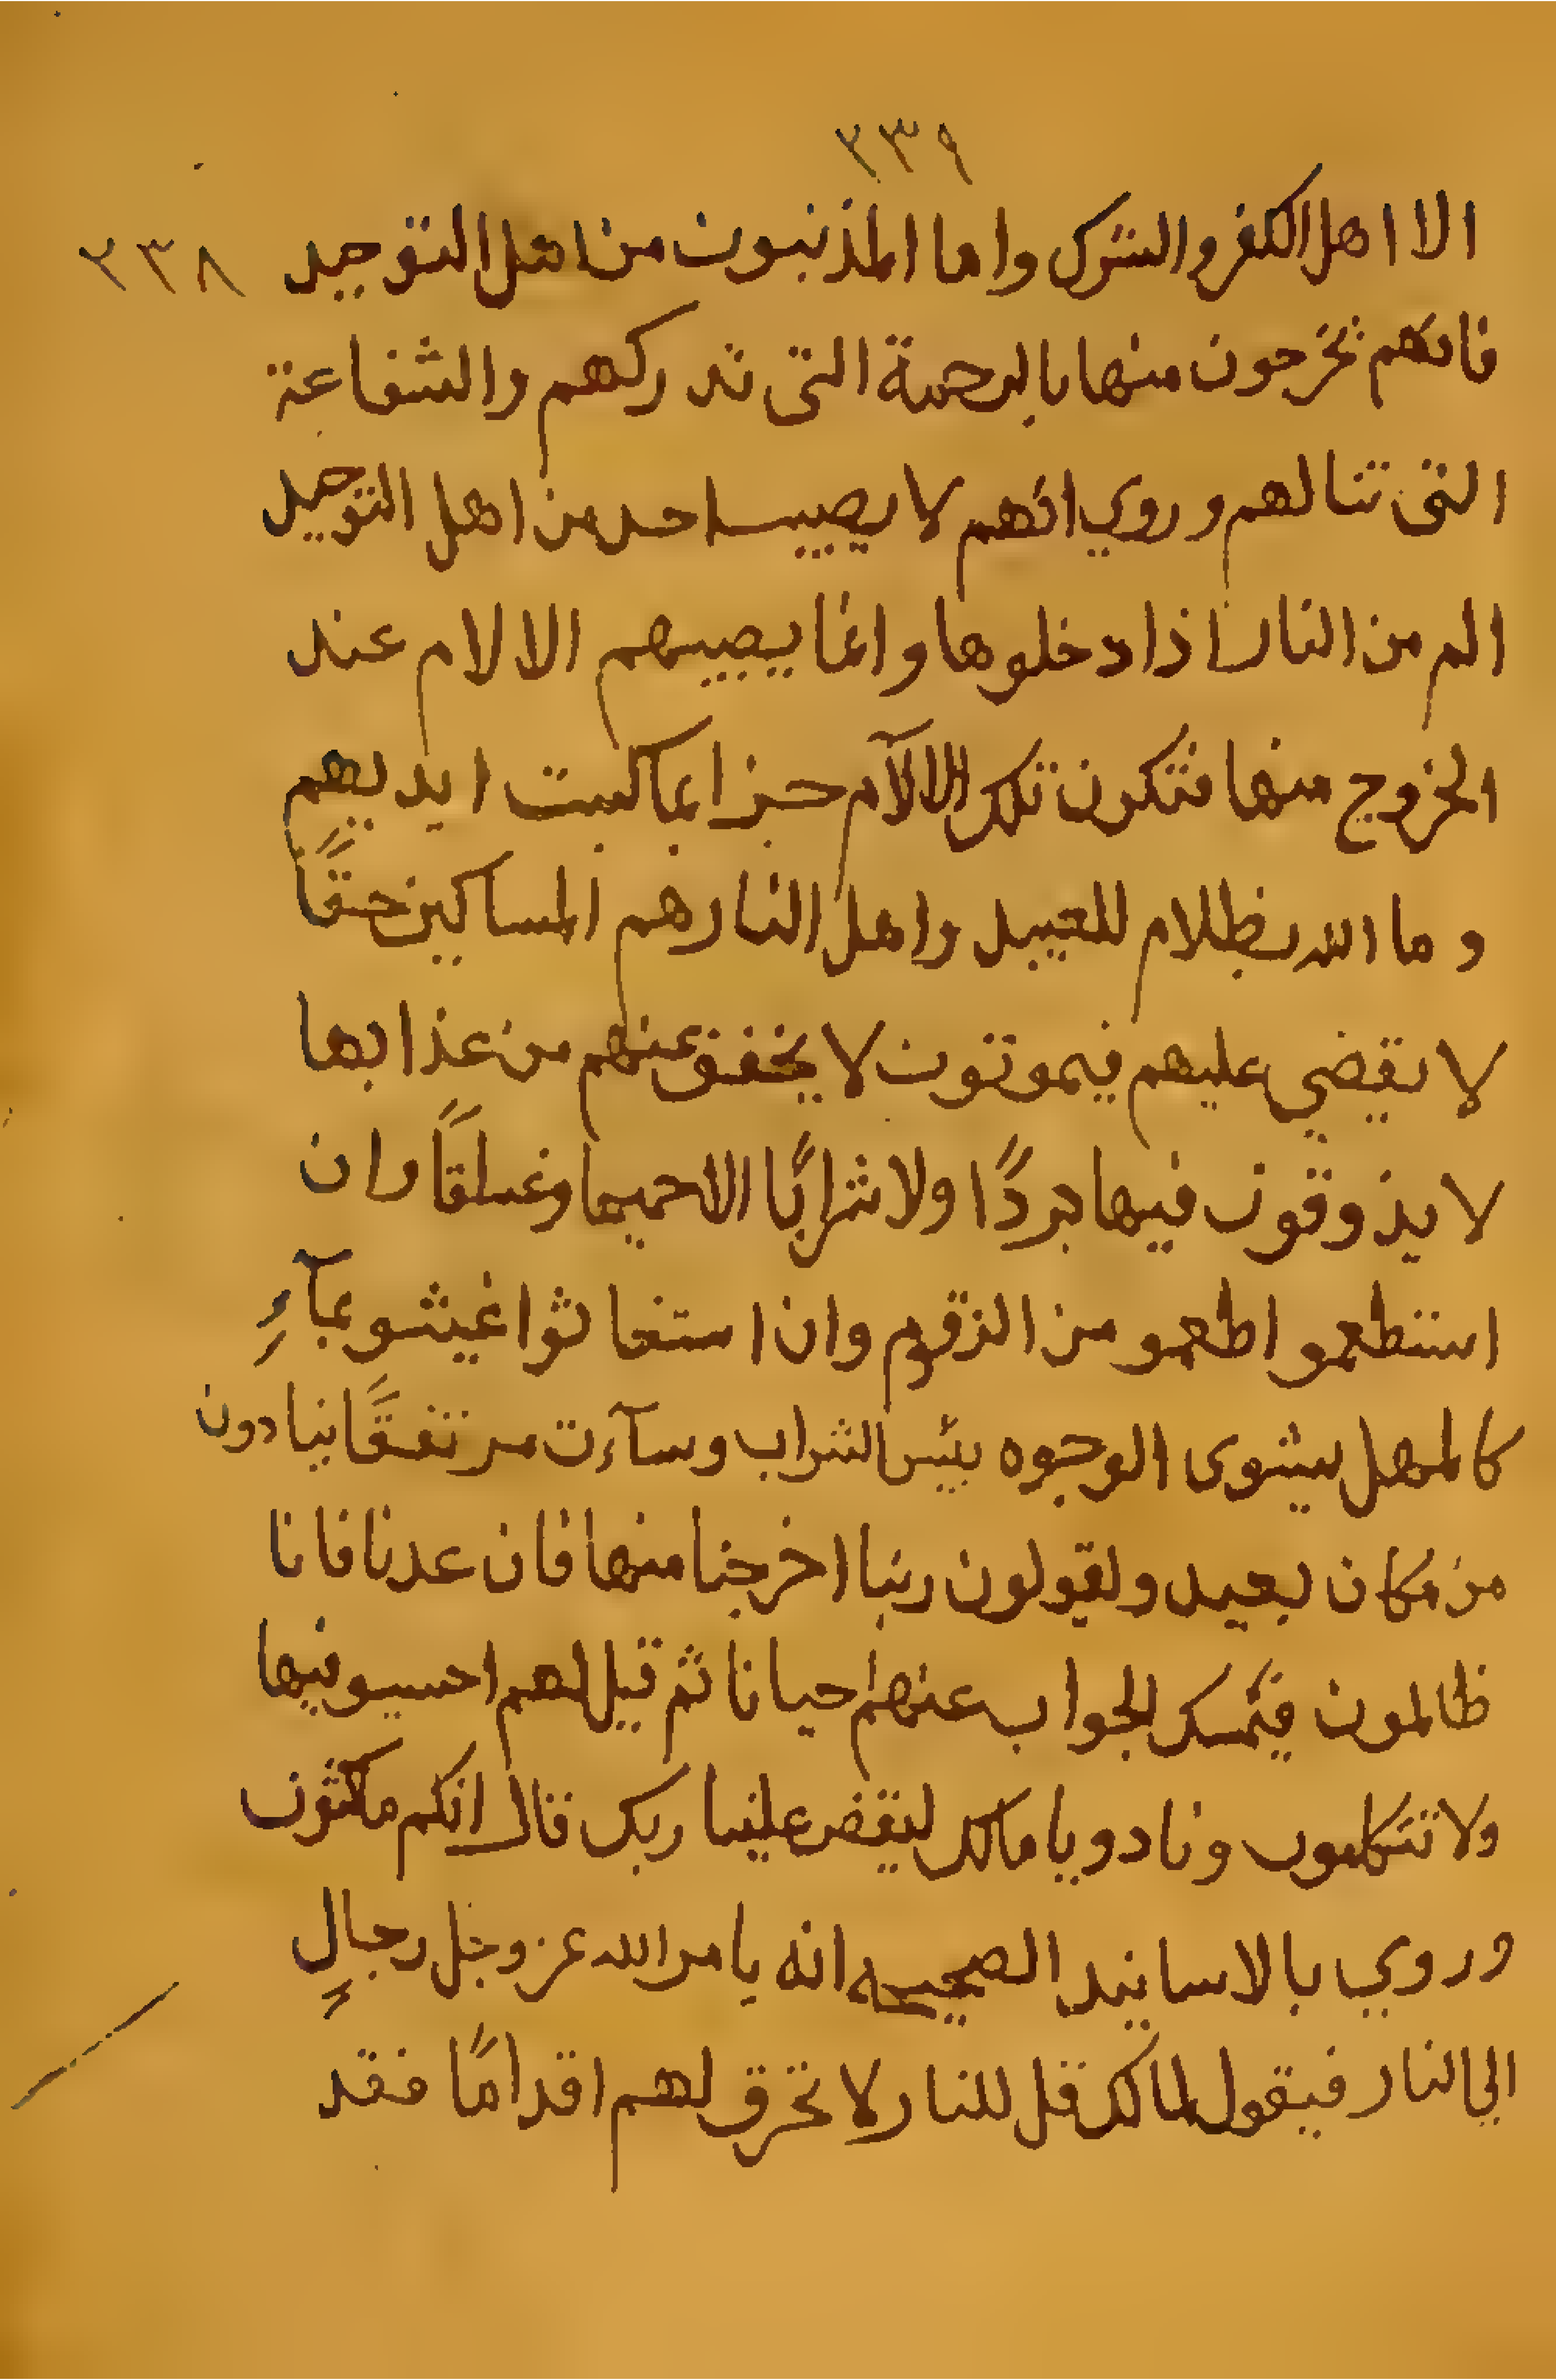 ٢٣٩
الا اهل الكفر والشرك واما المذنبون من اهل التوحيد ٢٣٨
فانهم يخرجون منها بالرحمة التى تدركهم والشفاعة
التى تنالهم وروي انهم لا يصيب احد من اهل التوحيد
الم من النار اذا دخلوها وانما يصيبهم الالام عند
الخروج منها فتكون تلك الالآم جزا بما كسبت ايديهم
و ما الله بظلام للعبيد واهل النار هم المساكين حقًا
لا يقضي عليهم فيموتون لا يخفف عنهم من عذابها
لا يذوقون فيها بردًا ولا شرابًا الا حميما وغساقًا وان
استطعموا اطعمو من الزقوم وان استغاثوا اغيثو بمآءٍ
كالمهل يشوى الوجوه بئس الشراب وسآءت مرتفقًا ينادون
من مكان بعيد ويقولون ربنا اخرجنا منها فان عدنا فانا
ظالمون فيمسك الجواب عنهم احيانا ثم قيل لهم اخسيو فيها
ولا تتكلمون ونادو يا مالك ليقض علينا ربك قال انكم مكثون
وروي بالاسانيد الصحيحه انه يامر الله عز وجل رجالٍ
الي النار فيقول لمالك قل للنار لا تحرق لهم اقدامًا فقد